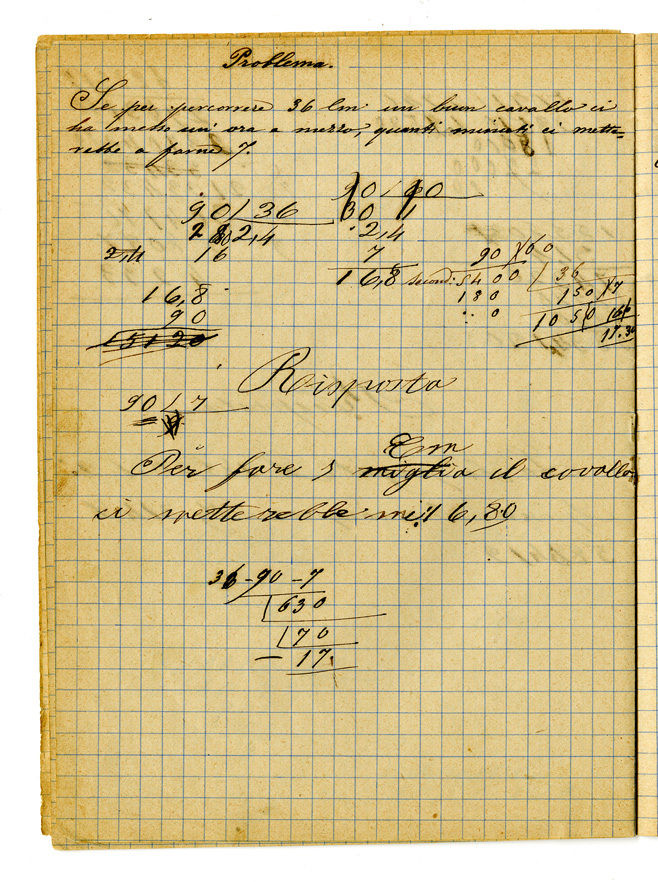 Problema.
Se per percorrere 36 km un buon cavallo ci
ha messo un' ora a mezzo, quanti minuti ci mette-
rebbe a farne 7.
90 / 60
90 / 36
30
2,4
2,4
16
7
90 / 60
16,8
second: 5400 / 36
16,8
180
150 / 7
90
0
1050
15120
17.30
Risposta
90 / 7
Em
Per fare 7 miglia il cavallo
ci metterebbe 16,80
36 - 90 - 7
630
70
17.